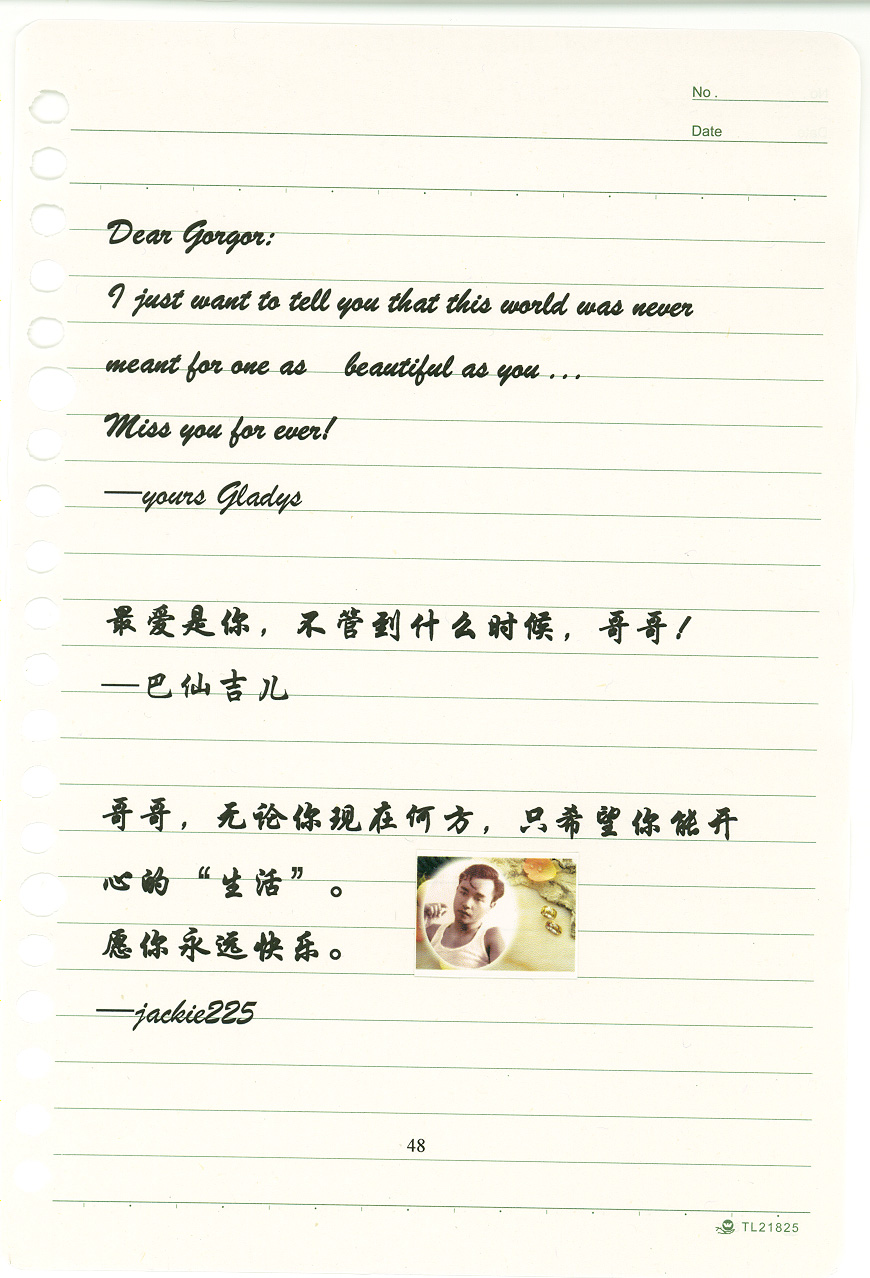 No.
Date
Dear Gorgor:
I just want to tell you that this world was never
meant for one as beautiful as you ...
Miss you for ever!
—yours Gladys
最爱是你，不管到什么时候，哥哥！
—巴仙吉儿
哥哥，无论你现在何方，只希望你能开
心的“生活”。
愿你永远快乐。
—jackie225
48
TL21825